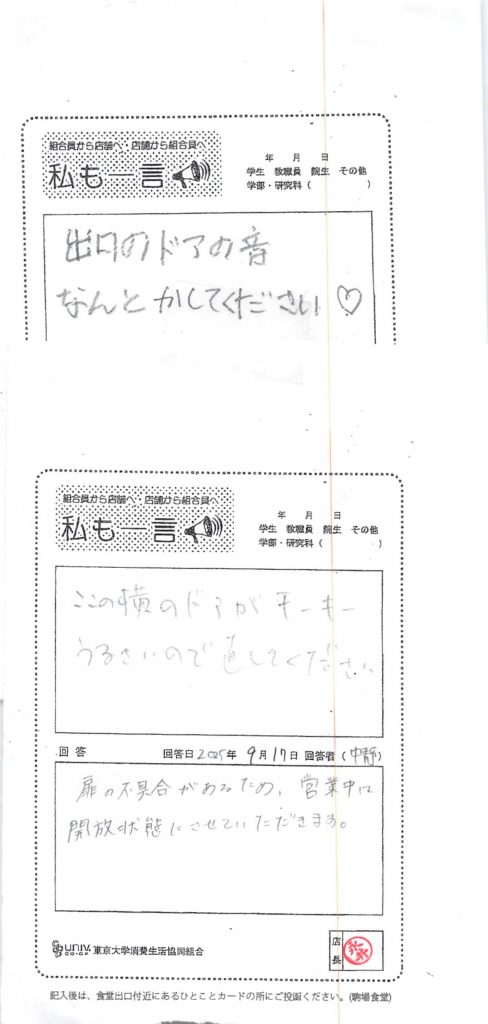 組合員から店舗へ・店舗から組合員へ
私も一言
年 月 日
学生 教職員 院生 その他
学部・研究科 ( )
出口のドアの音
なんとかしてください♡
組合員から店舗へ・店舗から組合員へ
私も一言
年 月 日
学生 教職員 院生 その他
学部・研究科 ( )
ここの横のドアがキーキー
うるさいので直してください
回答 回答日 2025年 9月17日 回答者 (中静)
扉の不具合があるため、営業中は
開放状態にさせていただきます。
univ. co-op 東京大学消費生活協同組合
店長
記入後は、食堂出口付近にあるひとことカードの所にご投函ください。(駒場食堂)